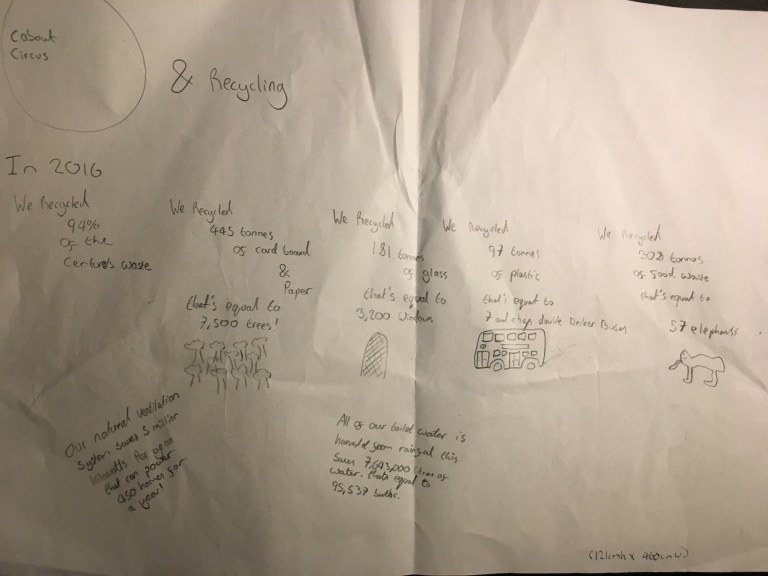 Cabout
Circus
& Recycling
In 2016
We Recycled
94%
of the
Centures waste
We Recycled
445 tonnes
of card board
&
Paper
that's equal to
7,500 trees!
We Recycled
181 tonnes
of glass
that's equal to
3,200 windows
We Recycled
97 tonnes
of plastic
that's equal to
7 and double Decker Buses
We Recycled
308 tonnes
of food waste
that's equal to
57 elephants
Our natural ventilation
System saves 5 million
that can power
450 homes for
a year!
All of our toilet water is
from this
Saves 7,643,000 litres of
water. thats equal to
95,537 baths.
(121cmh x 460cmW)